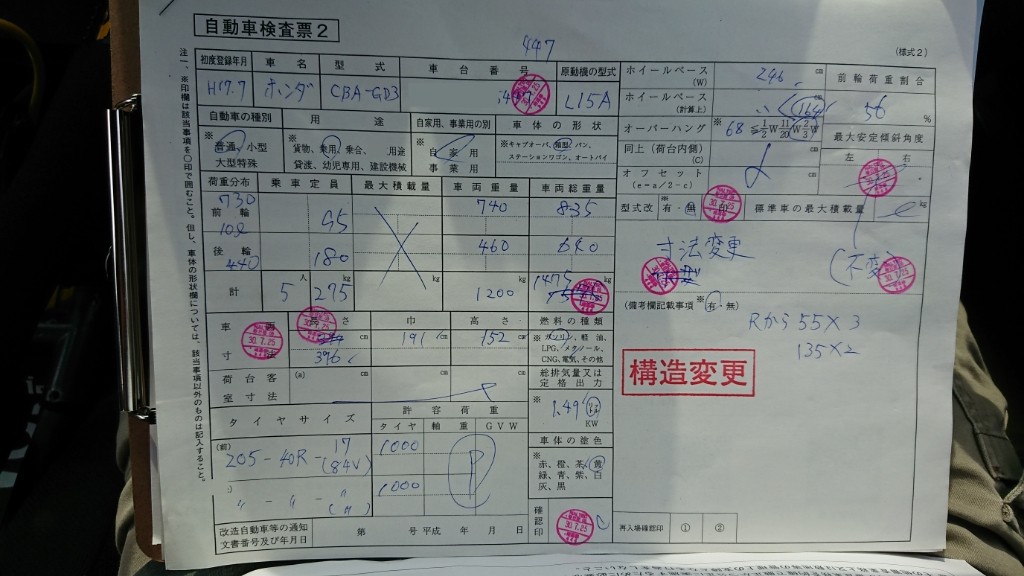 自動車検査票2
447
(様式2)
注1.※印欄は該当事項を○印で囲むこと。但し、車体の形状欄については、該当事項以外のものは記入すること。
初度登録年月 車名 型式 車台番号 原動機の型式
H17.7 ホンダ CBA-GD3 L15A
ホイールベース(W) 246 cm
前輪荷重割合
ホイールベース(計算上) 〃 (164) cm
56 %
自動車の種別 用途 自家用、事業用の別 車体の形状
※普通、小型 大型特殊
※貨物、乗用、乗合、用途 貸渡、幼児専用、建設機械
※自家用 事業用
※キャブオーバ、箱型、バン、ステーションワゴン、オートバイ
オーバーハング ※ 68 ≦1/2W 11/20W 2/3W
最大安定傾斜角度
同上(荷台内側)(C)
左 右
オフセット(e=a/2-c) cm
荷重分布 乗車定員 最大積載量 車両重量 車両総重量
730
前輪 95 740 835
10l
後輪 180 460 640
440
計 5人 275 kg kg 1200 kg 1475 kg
型式改 ※有・無 標準車の最大積載量
寸法変更 (不変)
(備考欄記載事項 ※有・無)
Rから 55×3
135×2
構造変更
車両寸法 長さ 巾 高さ 燃料の種類
396 cm 191 cm 152 cm
※ガソリン、軽油、LPG、メタノール、CNG、電気、その他
荷台客室寸法 (a) cm
総排気量又は定格出力
※ 1.49 KW
タイヤサイズ 許容荷重
タイヤ 軸重 GVW
(前) 205-40R-17 (84V) 1000
〃-〃-〃 (〃) 1000
車体の塗色
※赤、橙、茶、黄 緑、青、紫、白 灰、黒
確認印
30.7.25
改造自動車等の通知文書番号及び年月日 第 号 平成 年 月 日
再入場確認印 ① ②